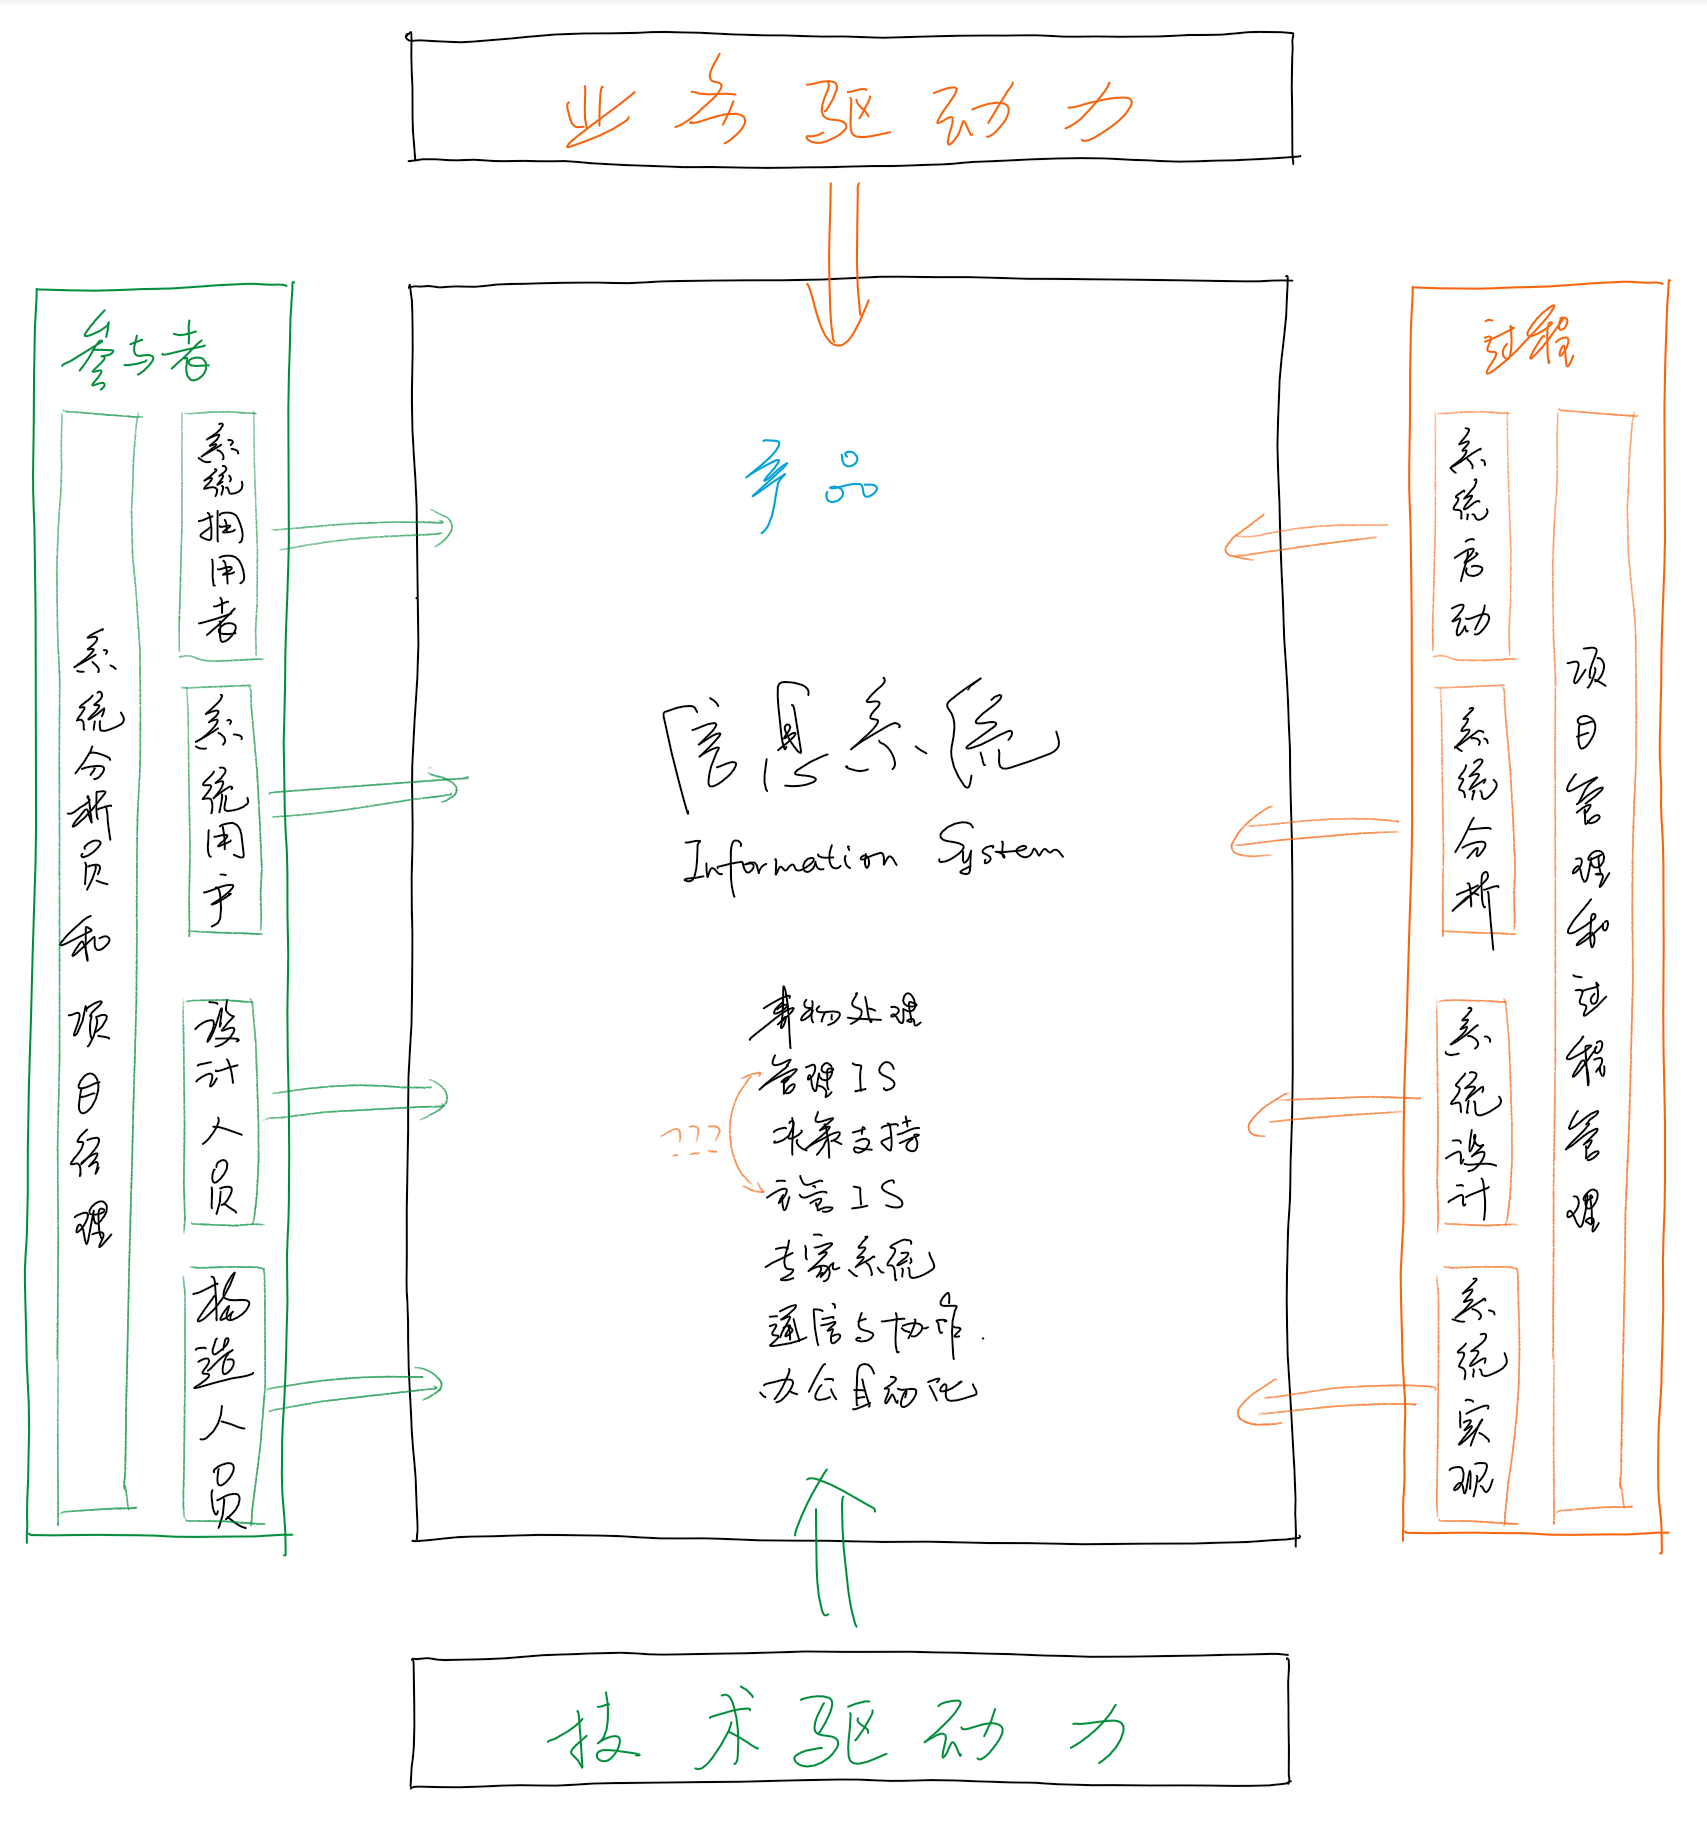 业务驱动力
参与者
系统分析员和项目经理
系统拥用者
系统用户
设计人员
构造人员
产品
信息系统
Information System
事物处理
管理IS
决策支持
???
主管IS
专家系统
通信与协作.
办公自动化
过程
系统启动
系统分析
系统设计
系统实现
项目管理和过程管理
技术驱动力